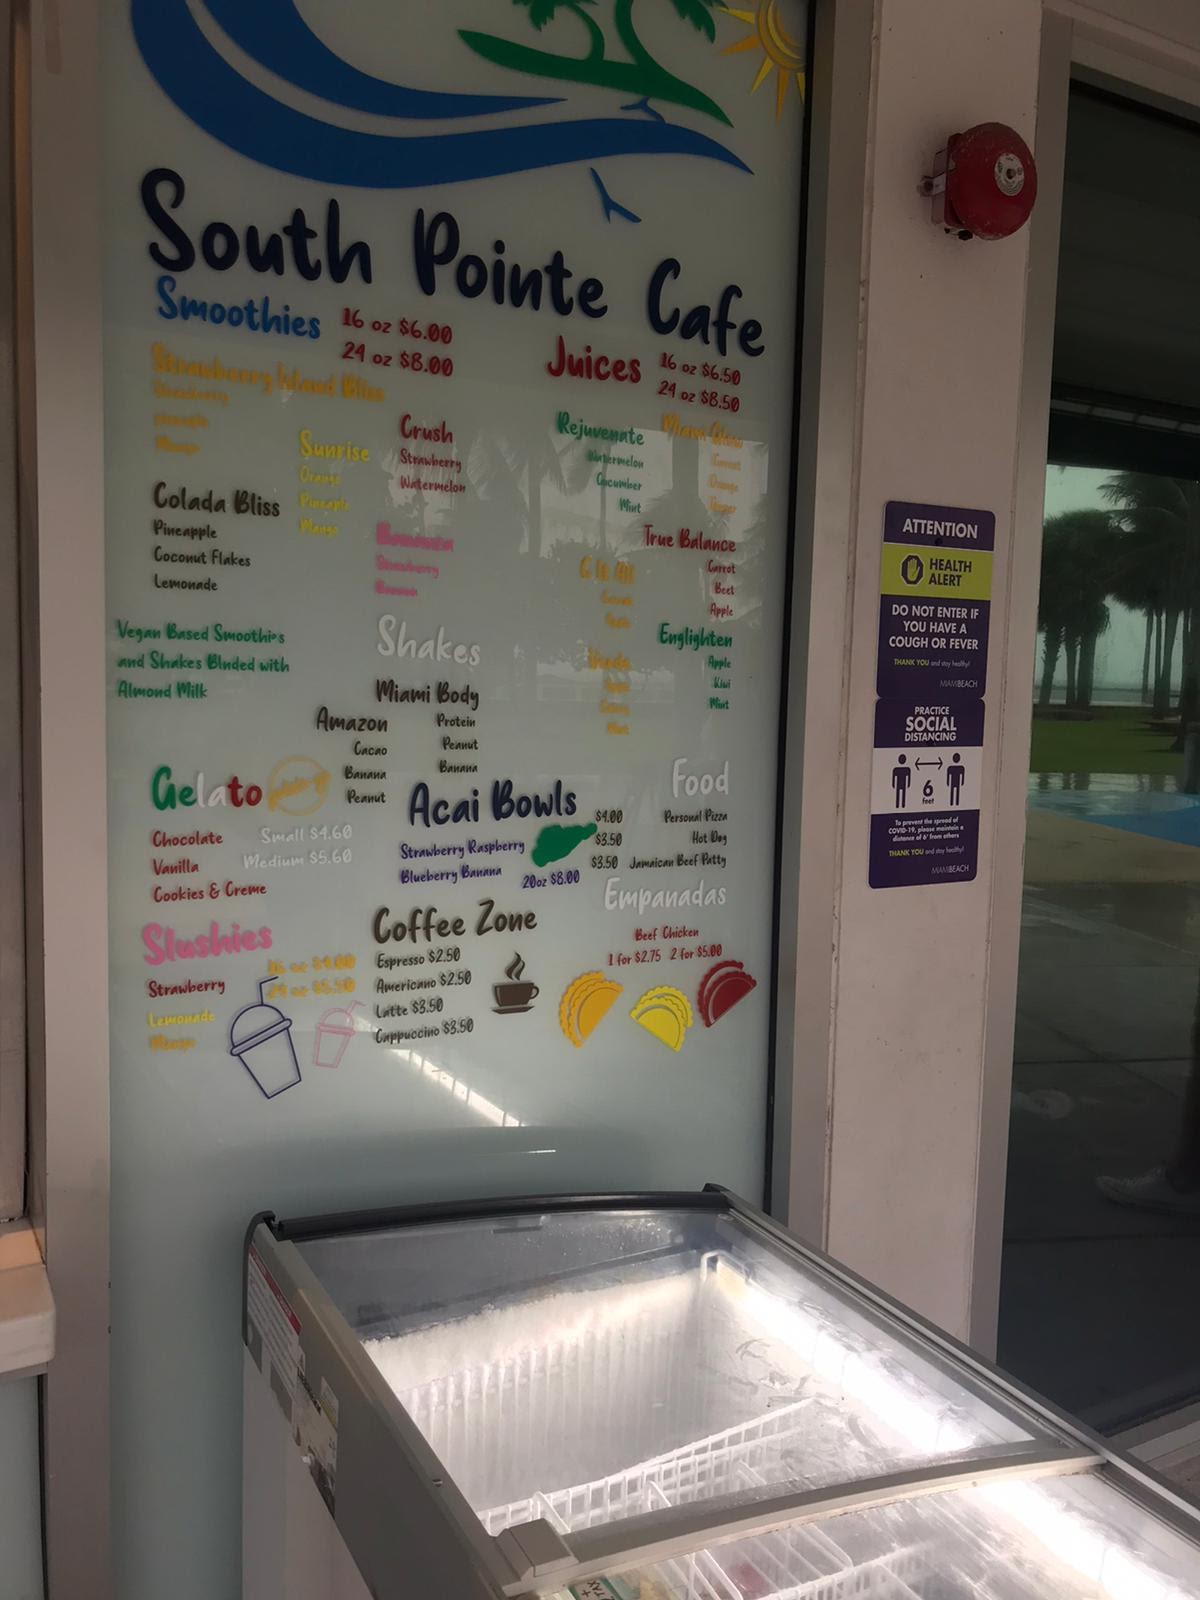 South Pointe Cafe
Smoothies
16 oz $6.00
24 oz $8.00
Strawberry Island Bliss
Strawberry
Pineapple
Mango
Sunrise
Orange
Pineapple
Mango
Crush
Strawberry
Watermelon
Colada Bliss
Pineapple
Coconut Flakes
Lemonade
Bananza
Strawberry
Banana
Vegan Based Smoothies
and Shakes Blnded with
Almond Milk
Shakes
Miami Body
Protein
Peanut
Banana
Amazon
Cacao
Banana
Peanut
Juices
16 oz $6.50
24 oz $8.50
Rejuvenate
Watermelon
Cucumber
Mint
Miami Glow
Carrot
Orange
True Balance
Carrot
Beet
Apple
Englighten
Apple
Kiwi
Mint
Gelato
Chocolate
Vanilla
Cookies & Creme
Small $4.60
Medium $5.60
Acai Bowls
Strawberry Raspberry
Blueberry Banana
20oz $8.00
Food
$4.00 Personal Pizza
$3.50 Hot Dog
$3.50 Jamaican Beef Patty
Empanadas
Beef Chicken
1 for $2.75 2 for $5.00
Slushies
16 oz $4.00
24 oz $5.50
Strawberry
Lemonade
Mango
Coffee Zone
Espresso $2.50
Americano $2.50
Latte $3.50
Cappuccino $3.50
ATTENTION
HEALTH
ALERT
DO NOT ENTER IF
YOU HAVE A
COUGH OR FEVER
THANK YOU and stay healthy!
MIAMIBEACH
PRACTICE
SOCIAL
DISTANCING
6
feet
To prevent the spread of
COVID-19, please maintain a
distance of 6' from others
THANK YOU and stay healthy!
MIAMIBEACH